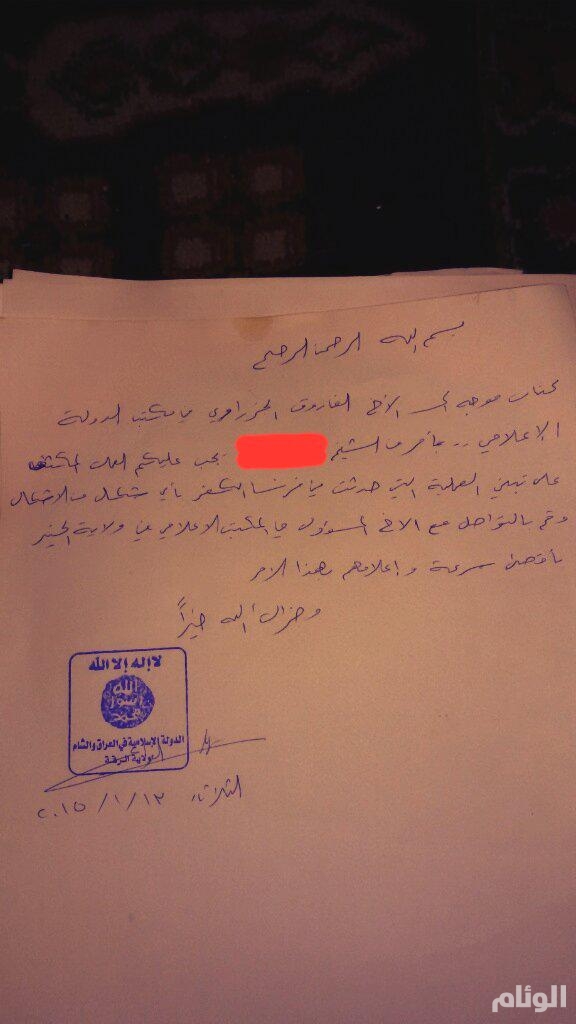 بسم الله الرحمن الرحيم
كتاب موجه الى الأخ الفاروق الجزراوي في مكتب الدولة
الإعلامي .. بأمر من الشيخ يجب عليكم العمل المكثف
على تبني العملية التي حدثت في فرنسا الكفر بأي شكل من الأشكال
وقم بالتواصل مع الأخ المسؤول في المكتب الإعلامي في ولاية الخير
بأقصى سرعة وإعلامهم بهذا الأمر
وجزاك الله خيراً
لا إله إلا الله
الله
رسول
محمد
الدولة الإسلامية في العراق والشام
ولاية الرقة
الثلاثاء ٢٠١٥/١/١٣
الوئام